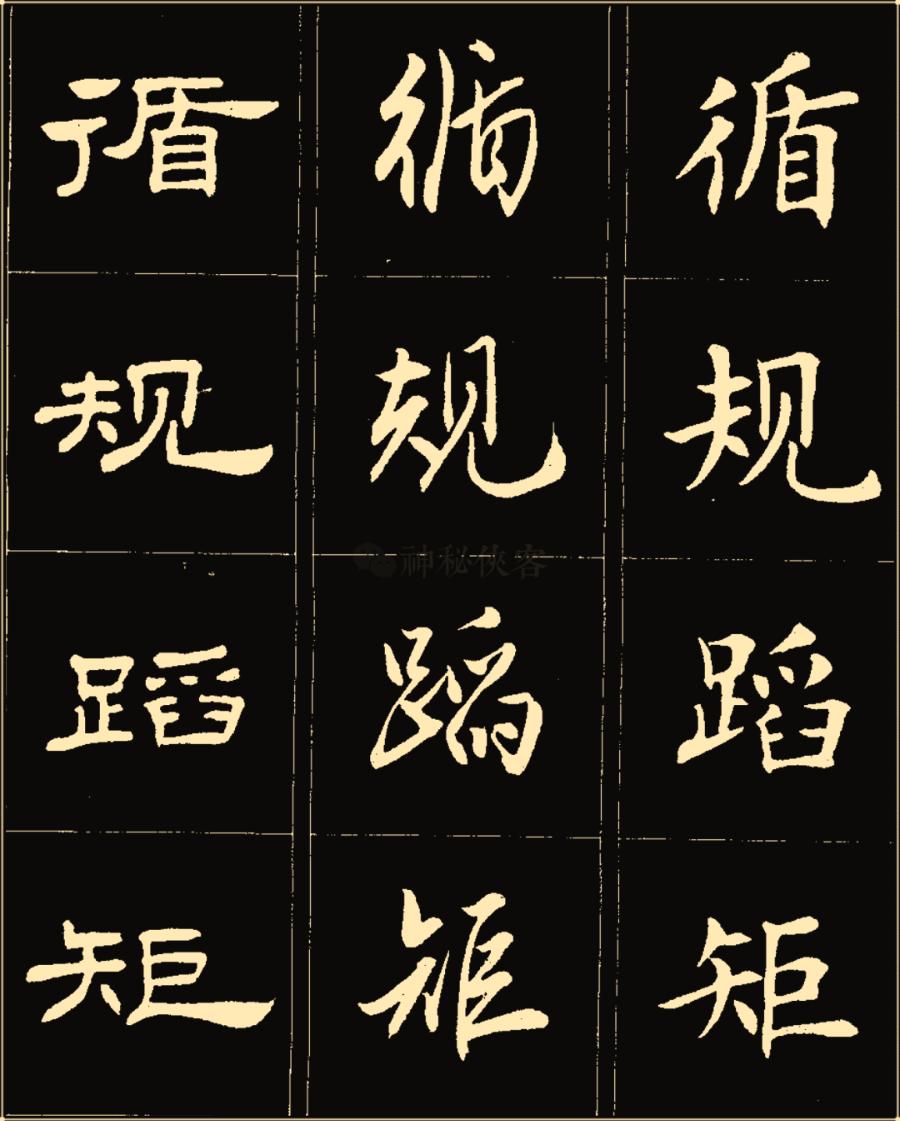 循规蹈矩
循规蹈矩
循规蹈矩
神秘侠客